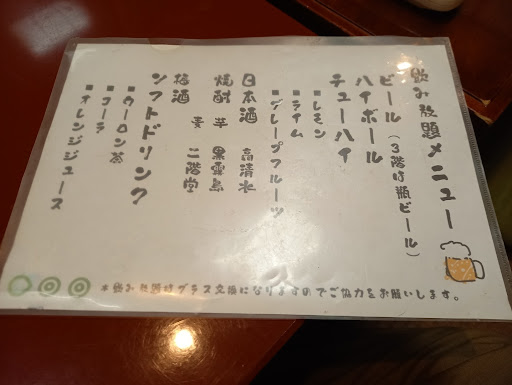 飲み放題メニュー
ビール（3階は瓶ビール）
ハイボール
チューハイ
■レモン
■ライム
■グレープフルーツ
日本酒 高清水
焼酎 芋 黒霧島
麦 二階堂
梅酒
ソフトドリンク
■ウーロン茶
■コーラ
■オレンジジュース
＊飲み放題はグラス交換になりますのでご協力をお願いします。